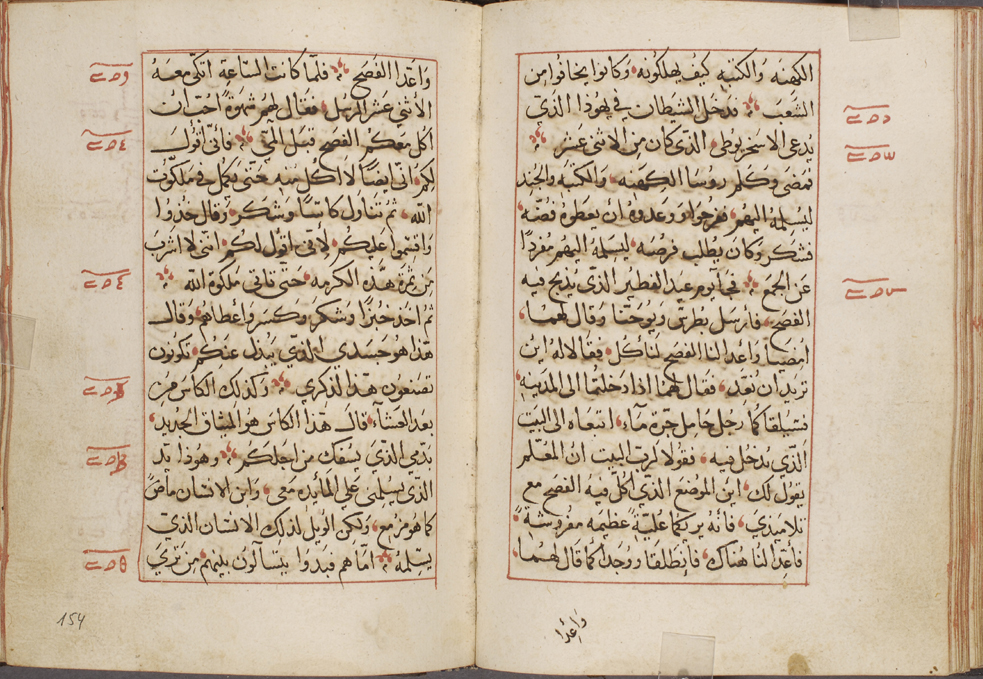 الكهنه والكتبه كيف يهلكونه وكانوا يخافوا من
الشعب فدخل الشيطان في يهودا الذي
يدعى الاسخريوطي الذي كان من الاثني عشر
فمضى وكلم روسا الكهنه والكتبه والجند
ليسلمه اليهم ففرحوا ووعدوه ان يعطوه فضه
فشكر وكان يطلب فرصه ليسلمه اليهم مفردًا
عن الجمع في آيوم عيد الفطير الذي يذبح فيه
الفصح فارسل بطرس ويوحنا وقال لهما
امضيا واعدا لنا الفصح لنأكل فقالا له اين
تريد ان نعد فقال لهما اذا دخلتما الى المدينه
فسيلقاكما رجل حامل جرة مآء اتبعاه الى البيت
الذي يدخل فيه فقولا لرب البيت ان المعلم
يقول لك اين الموضع الذي اكل فيه الفصح مع
تلاميذي فانه يريكما علية عظيمه مفروشة
فأعدا لنا هناك فانطلقا ووجدا كما قال لهما
وأعدا
واعدا الفصح فلما كانت الساعة اتكى معه
الاثني عشر الرسل فقال لهم شهوة احببت ان
اكل معكم الفصح قبل المي فاني اقول
لكم اني ايضًا لا اكل منه حتى يكمل في ملكوت
الله ثم تناول كاسًا وشكر وقال خذوا
واقتسموا عليكم لأني اقول لكم انني لا اشرب
من ثمرة هذه الكرمه حتى تاتي ملكوة الله
ثم اخذ خبزًا وشكر وكسر وأعطاهم وقال
هذا هو جسدي الذي يبذل عنكم تكونون
تصنعون هذا لذكري وكذلك الكاس من
بعد العشاء قال هذا الكاس هو الميثاق الجديد
بدمي الذي يسفك من اجلكم وهوذا يد
الذي يسلمني على المايده معي وابن الانسان ماضٍ
كما هو مزمع ولكن الويل لذلك الانسان الذي
يسلمه اما هم فبدوا يتسآلون بينهم من تري
154